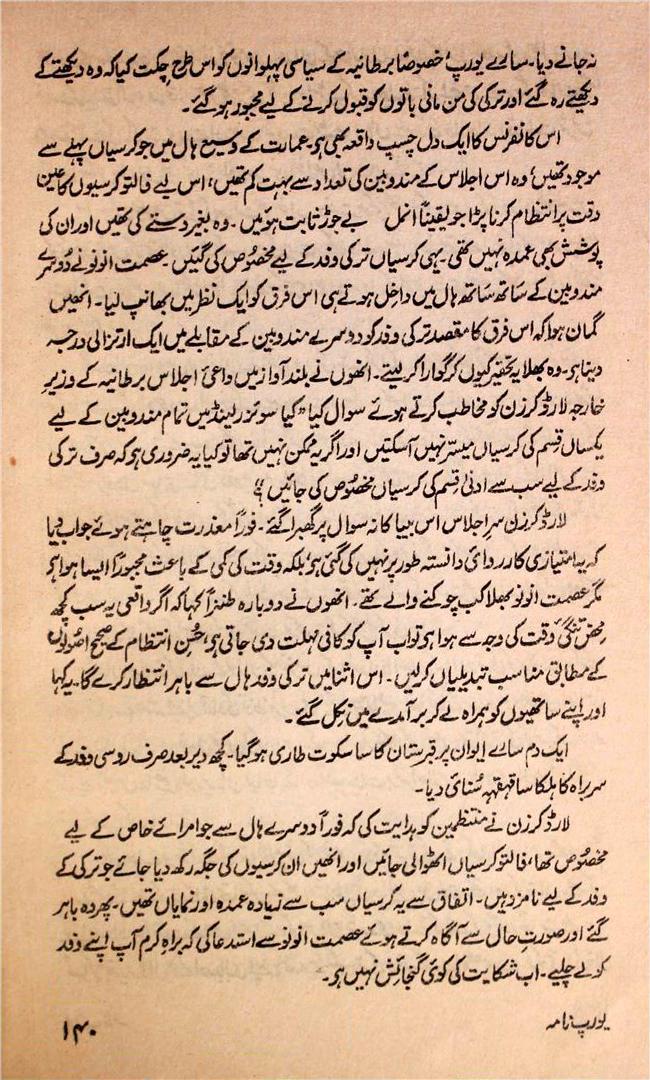 نہ جانے دیا۔ سارے یورپ، خصوصاً برطانیہ کے سیاسی پہلوانوں کو اس طرح چِکت کیا کہ وہ دیکھتے کے
دیکھتے رہ گئے اور ترکی کی من مانی باتوں کو قبول کرنے کے لیے مجبور ہو گئے۔
اس کانفرنس کا ایک دل چسپ واقعہ بھی ہو۔ عمارت کے وسیع ہال میں جو کرسیاں پہلے سے
موجود تھیں، وہ اس اجلاس کے مندوبین کی تعداد سے بہت کم تھیں، اس لیے فالتو کرسیوں کا عین
وقت پر انتظام کرنا پڑا جو یقیناً انمل بے جوڑ ثابت ہوئیں۔ وہ بغیر دستے کی تھیں اور ان کی
پوشش بھی عمدہ نہیں تھی۔ یہی کرسیاں ترکی وفد کے لیے مخصُوص کی گئیں۔ عصمت انونو نے دُوسرے
مندوبین کے ساتھ ساتھ ہال میں داخل ہوتے ہی اس فرق کو ایک نظر میں بھانپ لیا۔ انھیں
گمان ہوا کہ اس فرق کا مقصد ترکی وفد کو دوسرے مندوبین کے مقابلے میں ایک ارتزالی درجہ
دینا ہی۔ وہ بھلا یہ تحقیر کیوں کر گوارا کر لیتے۔ انھوں نے بلند آواز میں داعیٔ اجلاس برطانیہ کے وزیرِ
خارجہ لارڈ کرزن کو مخاطب کرتے ہوئے سوال کیا "کیا سوئزرلینڈ میں تمام مندوبین کے لیے
یکساں قِسم کی کرسیاں میسّر نہیں آسکتیں اور اگر یہ ممکن نہیں تھا تو کیا یہ ضروری ہو کہ صرف ترکی
وفد کے لیے سب سے ادنیٰ قِسم کی کرسیاں مخصُوص کی جائیں؟"
لارڈ کرزن سرِ اجلاس اس بیباکانہ سوال پر گھبرا گئے۔ فوراً معذرت چاہتے ہوئے جواب دیا
کہ یہ امتیازی کارروائی دانستہ طور پر نہیں کی گئی ہو، بلکہ وقت کی کمی کے باعث مجبوراً ایسا ہوا ہو
مگر عصمت انونو بھلا کب چوکنے والے تھے۔ انھوں نے دوبارہ طنزاً کہا کہ اگر واقعی یہ سب کچھ
محض تنگیِٔ وقت کی وجہ سے ہوا ہی تو اب آپ کو کافی مہلت دی جاتی ہی، حُسنِ انتظام کے صحیح اصُولوں
کے مطابق مناسب تبدیلیاں کرلیں۔ اس اثنا میں ترکی وفد ہال سے باہر انتظار کرے گا۔ یہ کہا
اور اپنے ساتھیوں کو ہمراہ لے کر برآمدے میں نکل گئے۔
ایک دم سارے ایوان پر قبرستان کا سا سکوت طاری ہو گیا۔ کچھ دیر بعد صرف روسی وفد کے
سربراہ کا ہلکا سا قہقہہ سُنائی دیا۔
لارڈ کرزن نے منتظمین کو ہدایت کی کہ فوراً دوسرے ہال سے جو امرائے خاص کے لیے
مخصُوص تھا، فالتو کرسیاں اٹھوالی جائیں اور انھیں ان کرسیوں کی جگہ رکھ دیا جائے جو ترکی کے
وفد کے لیے نامزد ہیں۔ اتفاق سے یہ کرسیاں سب سے زیادہ عمدہ اور نمایاں تھیں۔ پھر وہ باہر
گئے اور صورتِ حال سے آگاہ کرتے ہوئے عصمت انونو سے استدعا کی کہ براہِ کرم آپ اپنے وفد
کو لے چلیے۔ اب شکایت کی کوئی گنجائش نہیں ہی۔
یورپ نامہ
۱۴۰